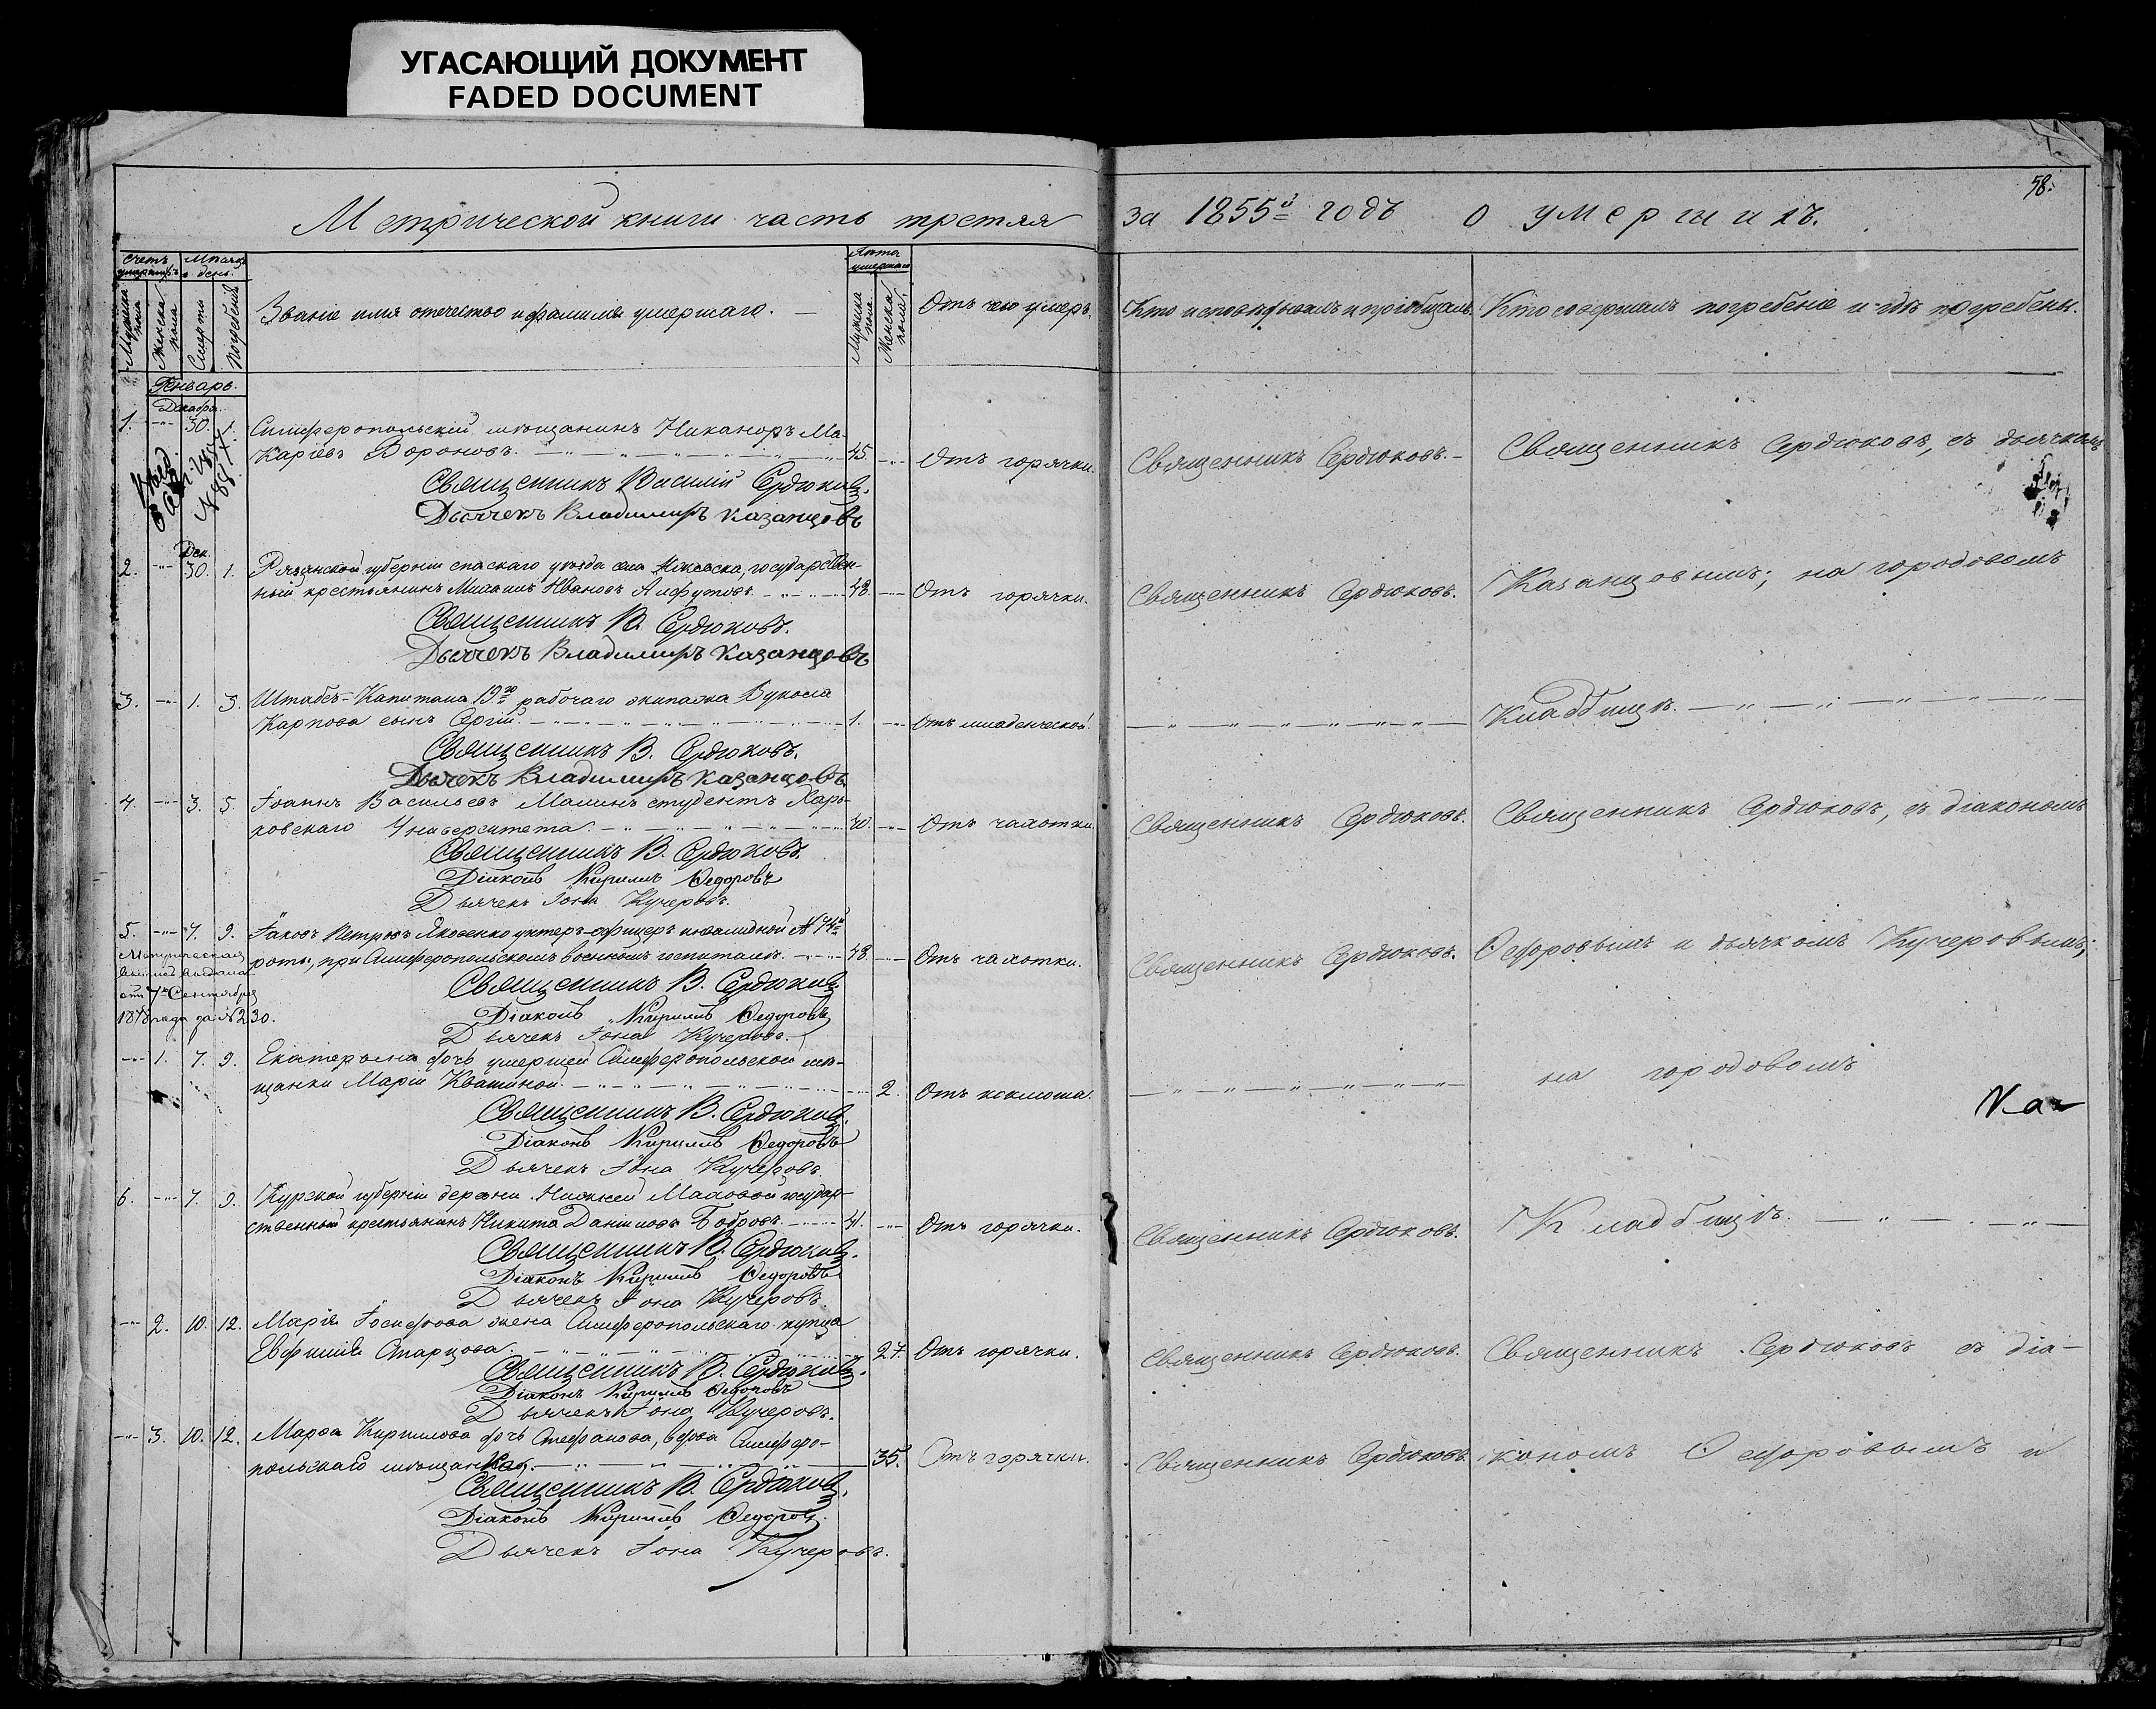 УГАСАЮЩИЙ ДОКУМЕНТ
FADED DOCUMENT
58.
Метрической книги часть третяя за 1855й годъ о умершихъ.
Счетъ умершихъ
Мѣсяцъ и день.
Лѣта умершаго
Мужеска пола
Женска пола
Смерти
Погребенія
Званіе имя отечество и фамилія умершаго.
Мужеска пола
Женска пола
Отъ чего умеръ.
Кто исповѣдывалъ и пріобщалъ.
Кто совершалъ погребеніе и гдѣ погребены.
Генварь.
Декабря.
1. 30. 1. Симферопольскій мѣщанинъ Никаноръ Ма-
каріевъ Вороновъ. 45 Отъ горячки. Священникъ Сердюковъ. Священникъ Сердюковъ, съ дьячкомъ
Священникъ Василій Сердюковъ.
Дьячекъ Владимиръ Казанцовъ
Дек.
2. 30. 1. Рязанской губерніи спаскаго уѣзда села государствен-
ный крестьянинъ Ивановъ 48. Отъ горячки. Священникъ Сердюковъ. Казанцовымъ; на городовомъ
Священникъ В. Сердюковъ.
Дьячекъ Владимиръ Казанцовъ
3. 1. 3. Штабсъ-Капитана 19го рабочаго экипажа Вукола
Карпова сынъ Сергій. 1. Отъ младенческой. Кладбищѣ.
Священникъ В. Сердюковъ.
Дьячекъ Владимиръ Казанцовъ
4. 3. 5. Іоаннъ Васильевъ Малинъ студентъ Харь-
ковскаго Университета. 20. Отъ чахотки. Священникъ Сердюковъ. Священникъ Сердюковъ, съ діакономъ
Священникъ В. Сердюковъ.
Діаконъ Кириллъ Ѳедоровъ
Дьячекъ Іона Кучеровъ.
5. 7. 9. Іаковъ Петровъ Яковенко унтеръ-офицеръ инвалидной № 74й
роты, при Симферопольскомъ военномъ госпиталѣ. 48. Отъ чахотки. Священникъ Сердюковъ. Ѳедоровымъ и дьячкомъ Кучеровымъ;
Метрическая
выдана
отъ 7го Сентября
1878 года за №230.
Священникъ В. Сердюковъ
Діаконъ Кириллъ Ѳедоровъ
Дьячекъ Іона Кучеровъ.
1. 7. 9. Екатерина дочь умершей Симферопольской мѣ-
щанки Маріи Квашиной. 2. Отъ коклюша. на городовомъ
Священникъ В. Сердюковъ.
Діаконъ Кириллъ Ѳедоровъ
Дьячекъ Іона Кучеровъ.
6. 7. 9. Курской губерніи деревни Нижней Маховой государ-
ственный крестьянинъ Никита Даніиловъ Бобровъ. 41. Отъ горячки. Священникъ Сердюковъ. Кладбищѣ.
Священникъ В. Сердюковъ.
Діаконъ Кириллъ Ѳедоровъ
Дьячекъ Іона Кучеровъ.
2. 10. 12. Марія Іосифова жена Симферопольскаго купца
Евфимія Старцова. 27. Отъ горячки. Священникъ Сердюковъ. Священникъ Сердюковъ съ діа-
Священникъ В. Сердюковъ.
Діаконъ Кириллъ Ѳедоровъ
Дьячекъ Іона Кучеровъ.
3. 10. 12. Марѳа Кирилова дочь Стефанова, вдова Симферо-
польскаго мѣщанина. 35. Отъ горячки. Священникъ Сердюковъ. кономъ Ѳедоровымъ и
Священникъ В. Сердюковъ.
Діаконъ Кириллъ Ѳедоровъ.
Дьячекъ Іона Кучеровъ.